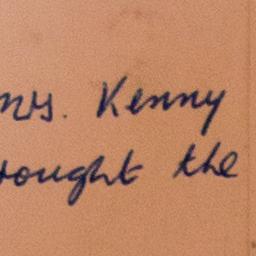 Mrs. Kenny
rought the